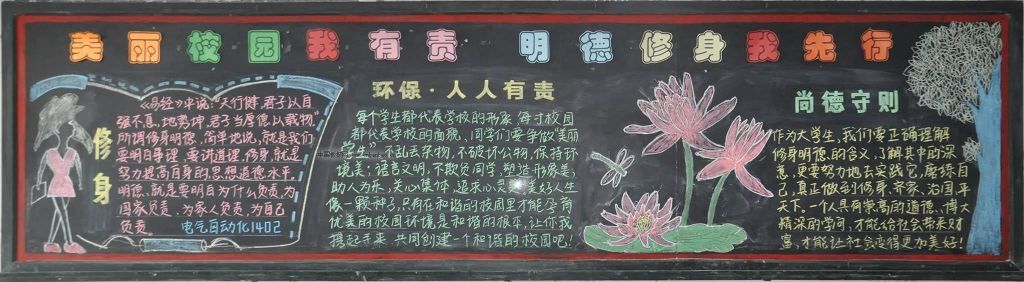 美丽校园我有责 明德修身我先行
修身
《易经》中说:“天行健,君子以自
强不息,地势坤,君子当厚德以载物”
所谓修身明德,简单地说,就是我们
要明日事理,要讲道理,修身,就是
努力提高自身的思想道德水平。
明德,就是要明自为什么负责,为
国家负责,为家人负责,为自己
负责。
电气自动化1402
环保·人人有责
每个学生都代表学校的形象,每寸校园
都代表学校的面貌,同学们要争做“美丽
学生”,不乱丢杂物,不破坏公物,保持环
境美;语言文明,不欺负同学,塑造形象美,
助人为乐,关心集体,追求心灵美,美好人生
像一颗种子,只有在和谐的校园里才能孕育
优美的校园环境是和谐的根本,让你我
携起手来,共同创建一个和谐的校园吧!
尚德守则
作为大学生,我们要正确理解
修身明德,的含义,了解其中的深
意,更要努力地去实践它,磨练自
己,真正做到修身、齐家、治国、平
天下,一个人具有崇高的道德、博大
精深的学问,才能给社会带来财
富,才能让社会变得更加美好!